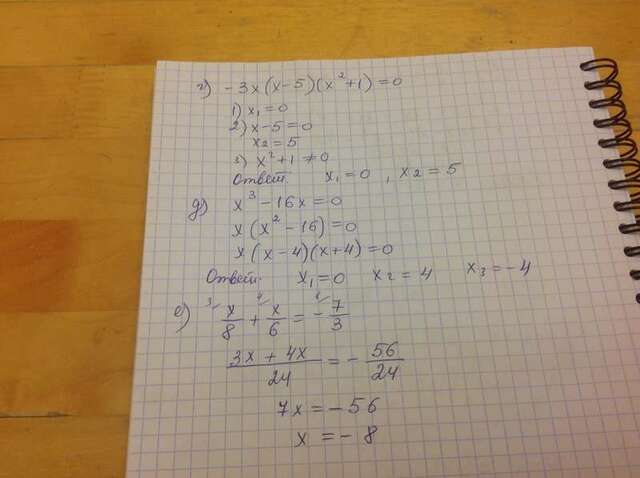 г) -3x(x-5)(x²+1)=0
1) x₁=0
2) x-5=0
x₂=5
3) x²+1≠0
Ответ: x₁=0, x₂=5
д) x³-16x=0
x(x²-16)=0
x(x-4)(x+4)=0
Ответ: x₁=0 x₂=4 x₃=-4
е) ³⁄ x/8 + ⁴⁄ x/6 = - ⁸⁄ 7/3
(3x+4x)/24 = - 56/24
7x=-56
x=-8